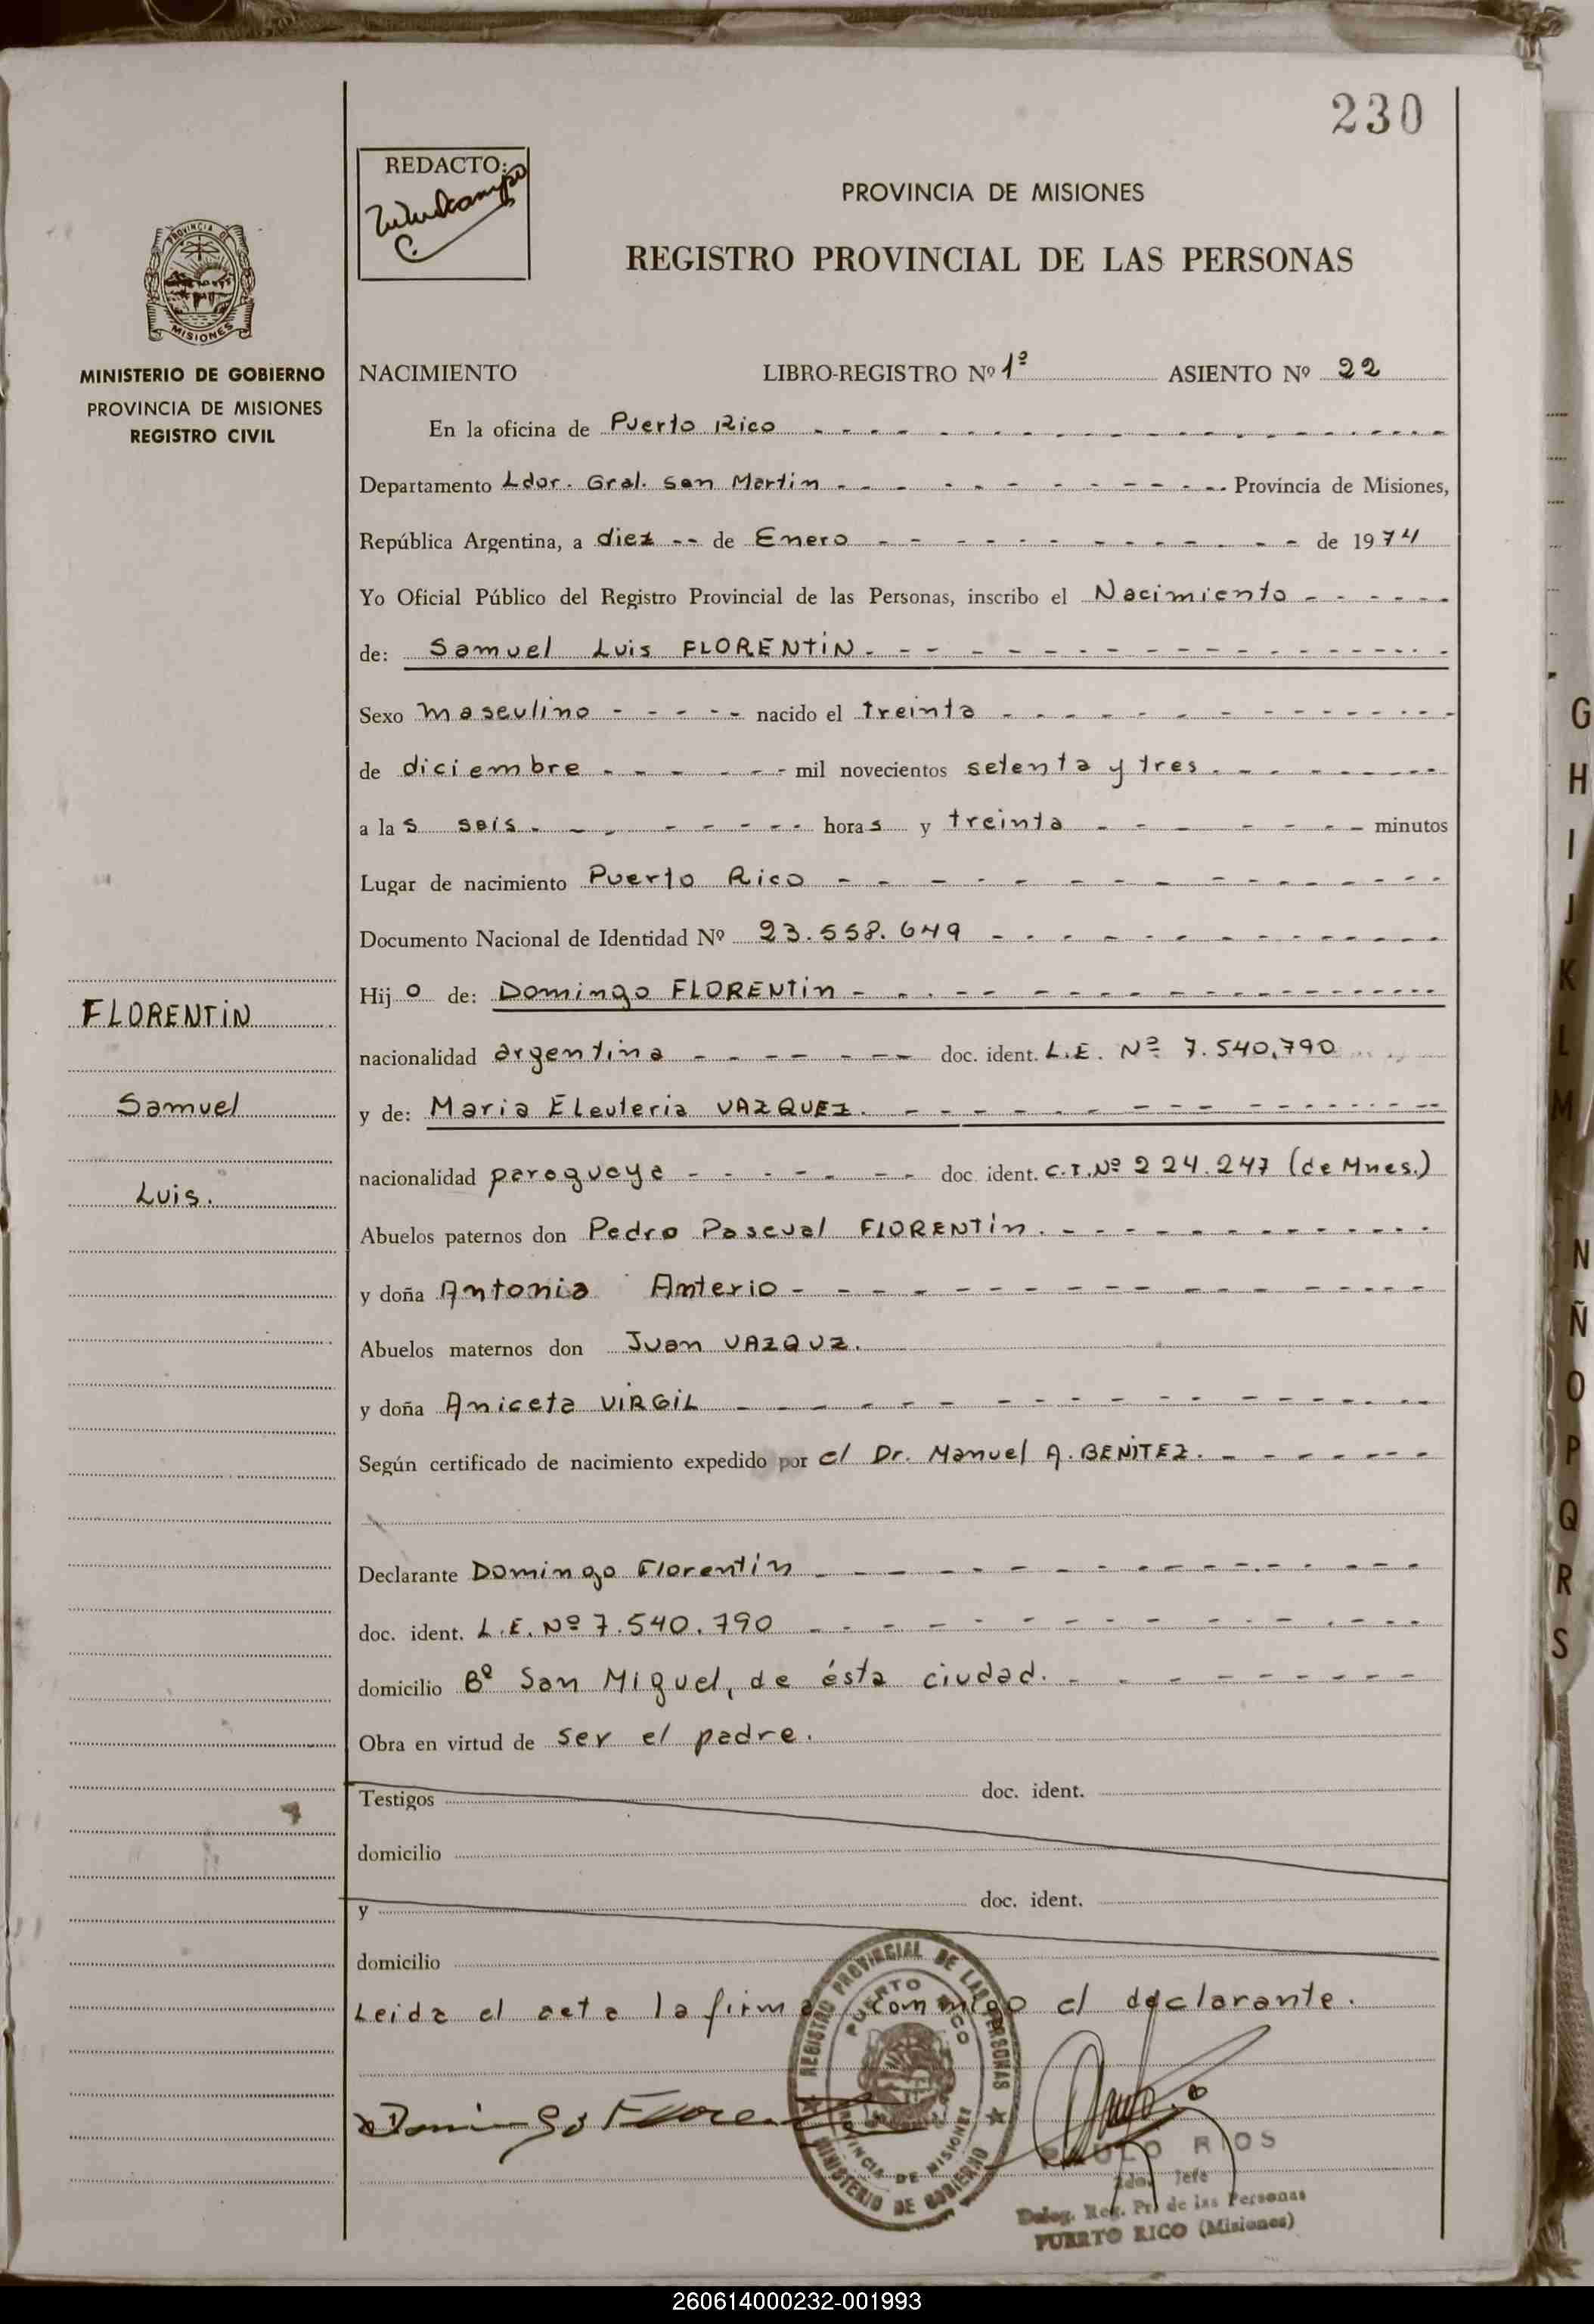 230
REDACTO:
PROVINCIA DE MISIONES
REGISTRO PROVINCIAL DE LAS PERSONAS
PROVINCIA DE
MISIONES
MINISTERIO DE GOBIERNO
PROVINCIA DE MISIONES
REGISTRO CIVIL
NACIMIENTO LIBRO-REGISTRO Nº 1º ASIENTO Nº 22
En la oficina de Puerto Rico
Departamento Ldor. Gral. San Martin Provincia de Misiones,
República Argentina, a diez de Enero de 1974
Yo Oficial Público del Registro Provincial de las Personas, inscribo el Nacimiento
de: Samuel Luis FLORENTiN.
Sexo masculino nacido el treinta
de diciembre mil novecientos setenta y tres.
a las seis. horas y treinta minutos
Lugar de nacimiento Puerto Rico
Documento Nacional de Identidad Nº 23.558.649
Hijo de: Domingo FLORENTin
nacionalidad argentina doc. ident. L.E. Nº 7.540.790
y de: Maria Eleuteria VAZQUEZ.
nacionalidad paraguaya doc. ident. C.I.Nº 224.247 (de Mnes.)
Abuelos paternos don Pedro Pascual FlORENTin.
y doña Antonia Anterio
Abuelos maternos don Juan VAZQUZ.
y doña Aniceta ViRGiL
Según certificado de nacimiento expedido por el Dr. Manuel A. BENiTEZ.
Declarante Domingo Florentin
doc. ident. L.E. Nº 7.540.790
domicilio Bº San Miguel, de ésta ciudad.
Obra en virtud de ser el padre.
Testigos doc. ident.
domicilio
y doc. ident.
domicilio
Leida el acta la firma conmigo el declarante.
Domingo
FLORENTiN
Samuel
Luis.
REGISTRO PROVINCIAL DE LAS PERSONAS
PUERTO RICO
PROVINCIA DE MISIONES
MINISTERIO DE GOBIERNO
RIOS
2do. Jefe
Deleg. Reg. Pr. de las Personas
PUERTO RICO (Misiones)
G
H
I
J
K
L
M
N
Ñ
O
P
Q
R
S
260614000232-001993